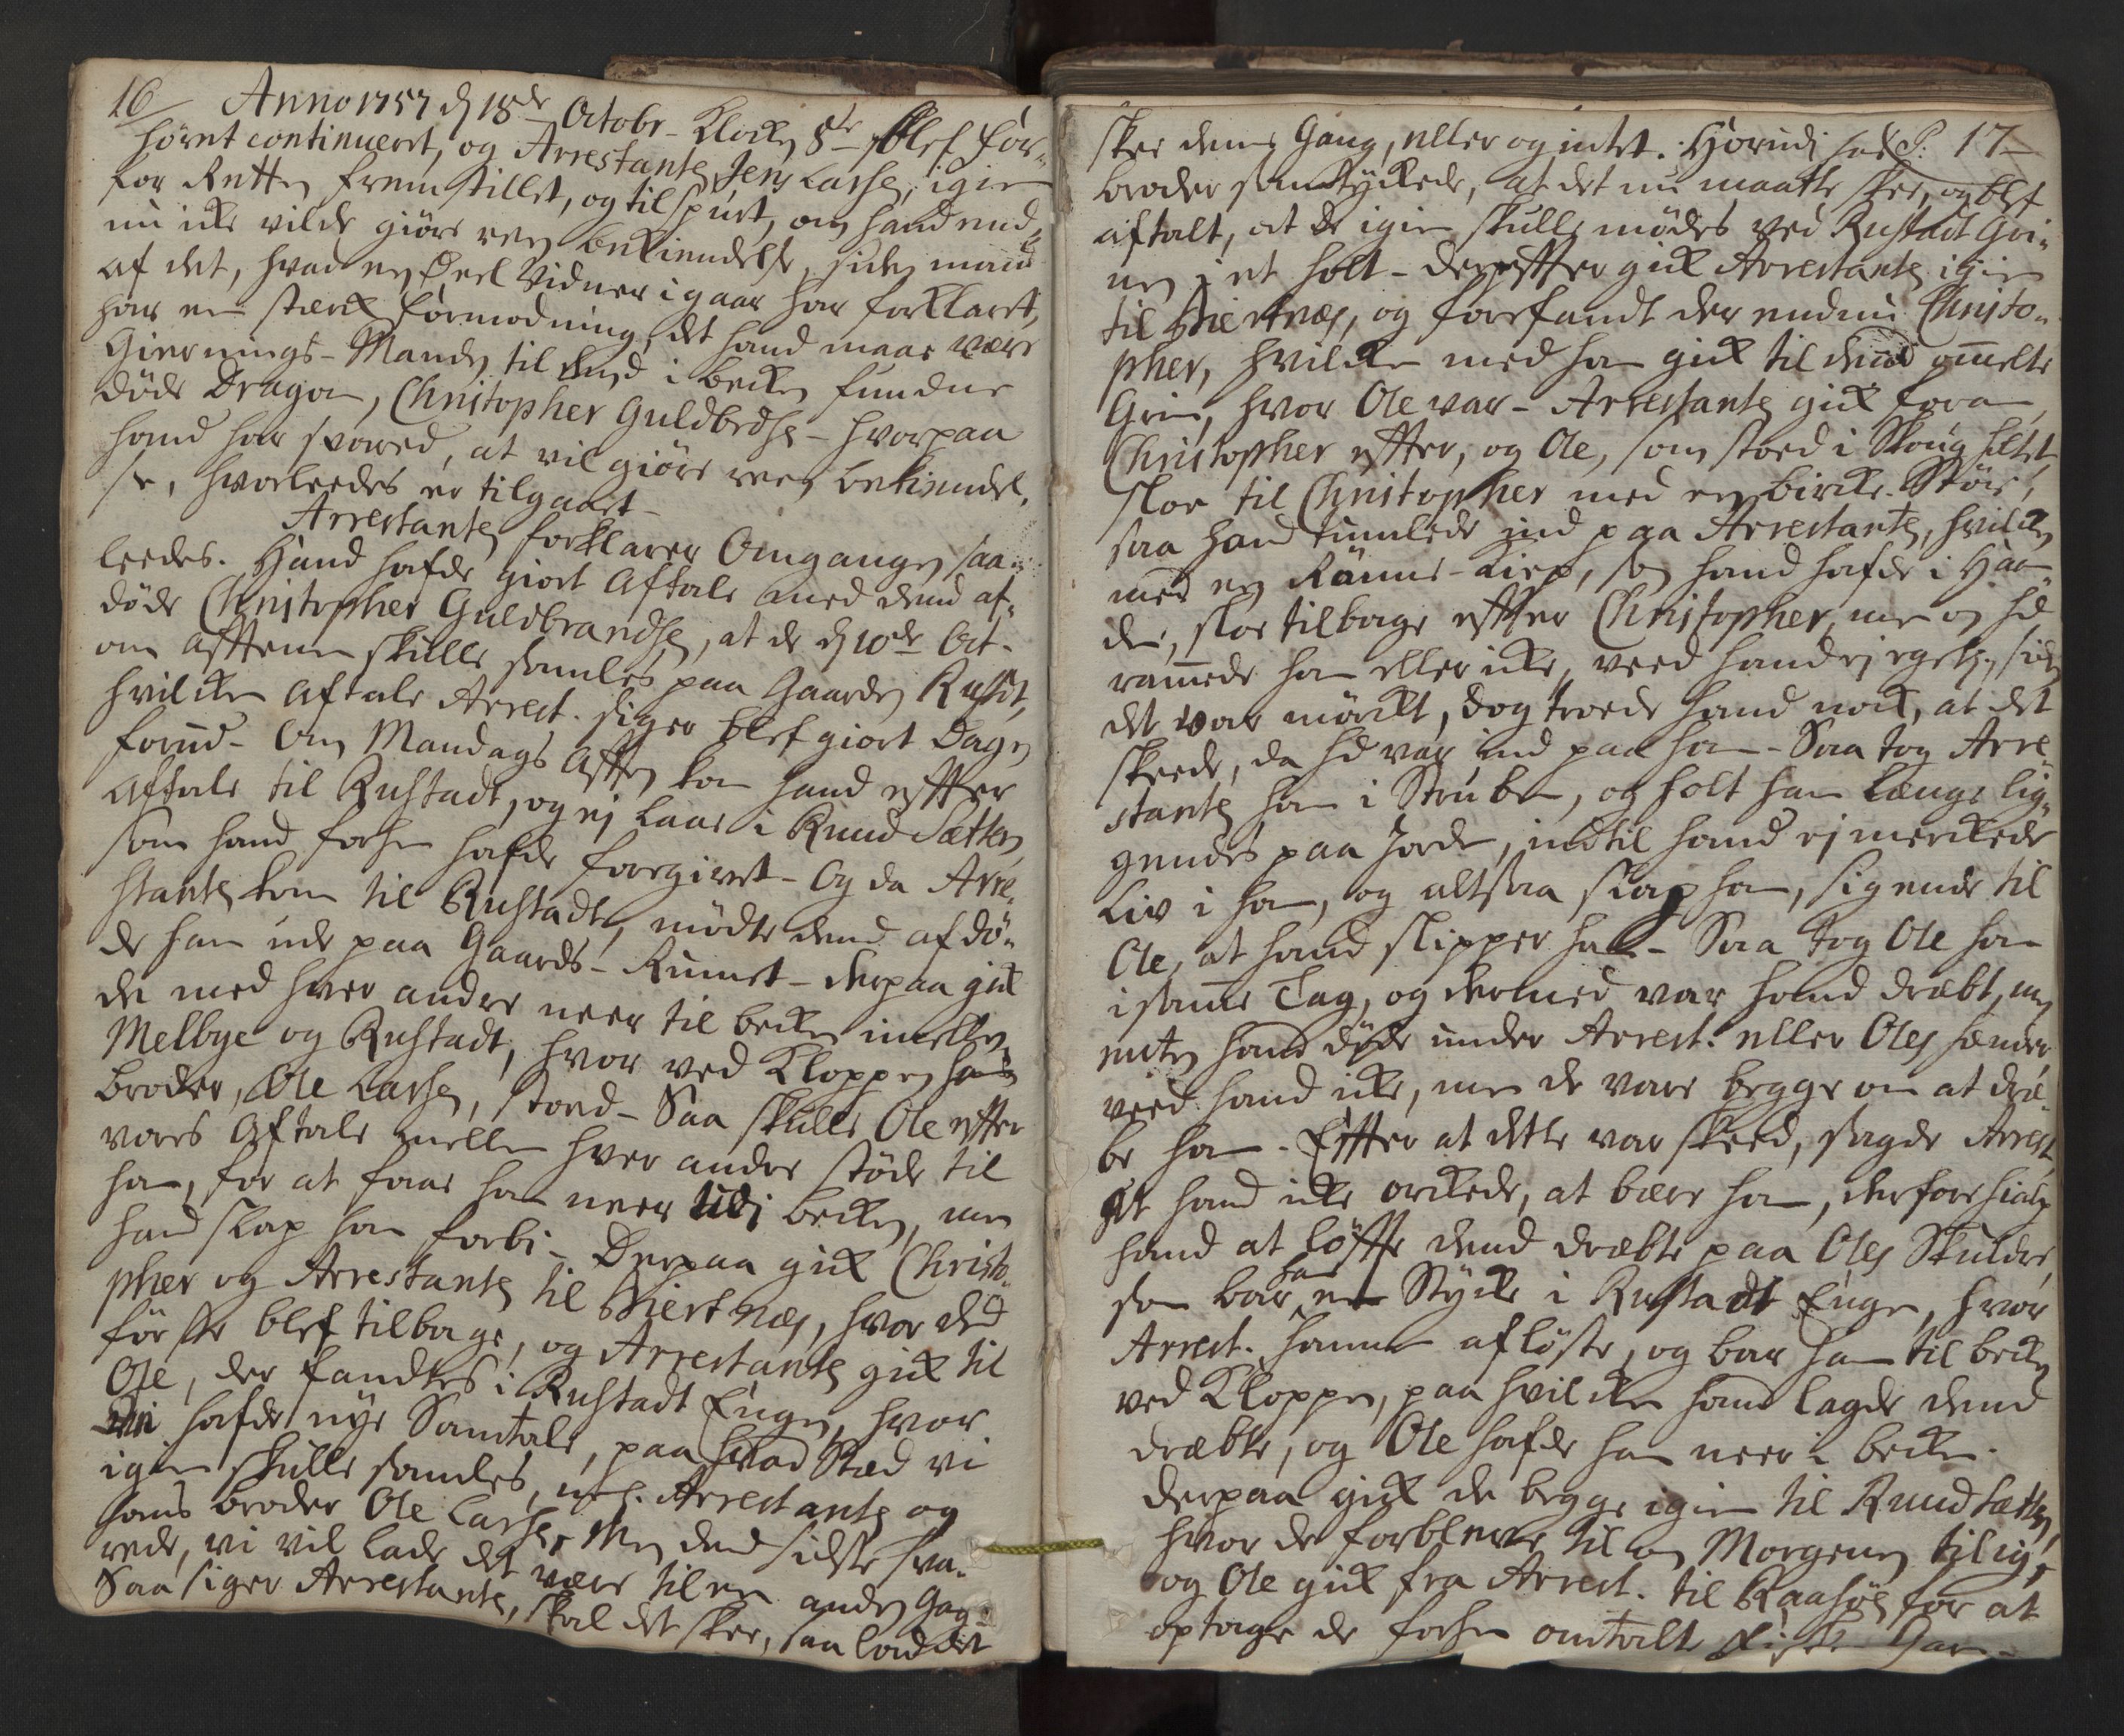 16/ Anno 1757 d 18de Octobr– Klocken 8te blef For-
høret continueret, og Arrestanten Jens Larsen, igien
for Retten fremstillet, og tilspurt, om hand end-
nu icke vilde giøre reen bekiendelse, siden mand
af det, hvad en Deel Vidner igaar har forklaret,
har een stærk formodning, det hand maae være
Giernings-Manden til dend i becken fundne
døde Dragon, Christopher Guldbrdsen – hvorpaa
hand har svared, at vil giøre reen bekiendel-
se, hvorleedes er tilgaaet –
Arrestanten forklarer Omgangen saa-
leedes. Hand hafde giort Aftale med dend af-
døde Christopher Guldbrandsen, at de d 10de Oct.
om Aftenen skulle samles paa Gaarden Rustat,
hvilken Aftale Arrest. siger blef giort Dagen
forud – Om Mandags Aften kom hand efter
Aftale til Rustadt, og ej laae i Ruud Sætten
som hand forhen hafde foregivet – Og da Arre-
stanten kom til Rustadt, mødte dend afdø-
de ham ude paa Gaards-Rumet – derpaa gik
de med hver andre neer til becken imellem
Melbye og Rustadt, hvor ved Kloppen hans
broder, Ole Larsen, stoed – Saa skulle Ole efter
vores Aftale mellem hver andre støde til
ham, for at faae ham neer udi becken, men
hand slap ham forbi – Derpaa gik Christo-
pher og Arrestanten til Biertnæs, hvor dend
første blef tilbage, og Arrestanten gik til
Ole, der fandtes i Rustadt Engen, hvor
vi hafde nye Samtale, paa hvad Stæd vi
igien skulle samles, nl. Arrestanten og
hans broder Ole Larsen, Men dend sidste sva-
rede, vi vil lade det være til en anden Gag.
Saa siger Arrestanten, skal det skee, saa lad det
skee denne Gang, eller og intet. Horudi hans P: 17
broder samtyckede, at det nu maatte skee, og blef
aftalt, at de igien skulle mødes ved Rustadt Gri-
nen i et holt – derefter gik Arrestanten igien
til Biertnæs, og forefandt der endnu Christo-
pher, hvilken med ham gik til dend omelte
Grin, hvor Ole var – Arrestanten gik foran,
Christopher efter, og Ole, som stoed i Skoug holtet,
sloe til Christopher med en bircke Stör,
saa hand tumlede ind paa Arrestanten, hvilken
med en Rönne-Kiep, som hand hafde i Haan-
den, sloe tilbage efter Christopher, men om hd
ramede ham eller icke, veed hand ej egentl., siden
det var mörckt, dog troede hand nok, at det
skeede, da hd var ind paa ham – Saa tog Arre-
stanten ham i Struben, og holt ham længe lig-
gendes paa Jorden, indtil hand ej merckede
Liv i ham, og altsaa slap ham, sigende til
Ole, at hand slipper ham – Saa tog Ole ham
i same Tag, og dermed var hand dræbt, men
enten hand döde under Arrest. eller Oles hænder,
veed hand icke, men de vare begge om at dræ-
be ham – Efter at dette var skeed, sagde Arrest.
at hand icke orckede, at bære ham, derfore hialp
hand at løfte dend dræbte paa Oles Skuldre,
som bar ham et Stycke i Rustadt Engen, hvor
Arrest. hannem afløste, og bar ham til becken
ved Kloppen, paa hvilcken hand lagde dend
dræbte, og Ole hafde ham neer i becken.
Derpaa gik de begge igien til Ruudsætten,
hvor de forbleve til om Morgenen tilig,
og Ole gik fra Arrest. til Raasøen for at
optage de forhen omtalte Fiske Garn –